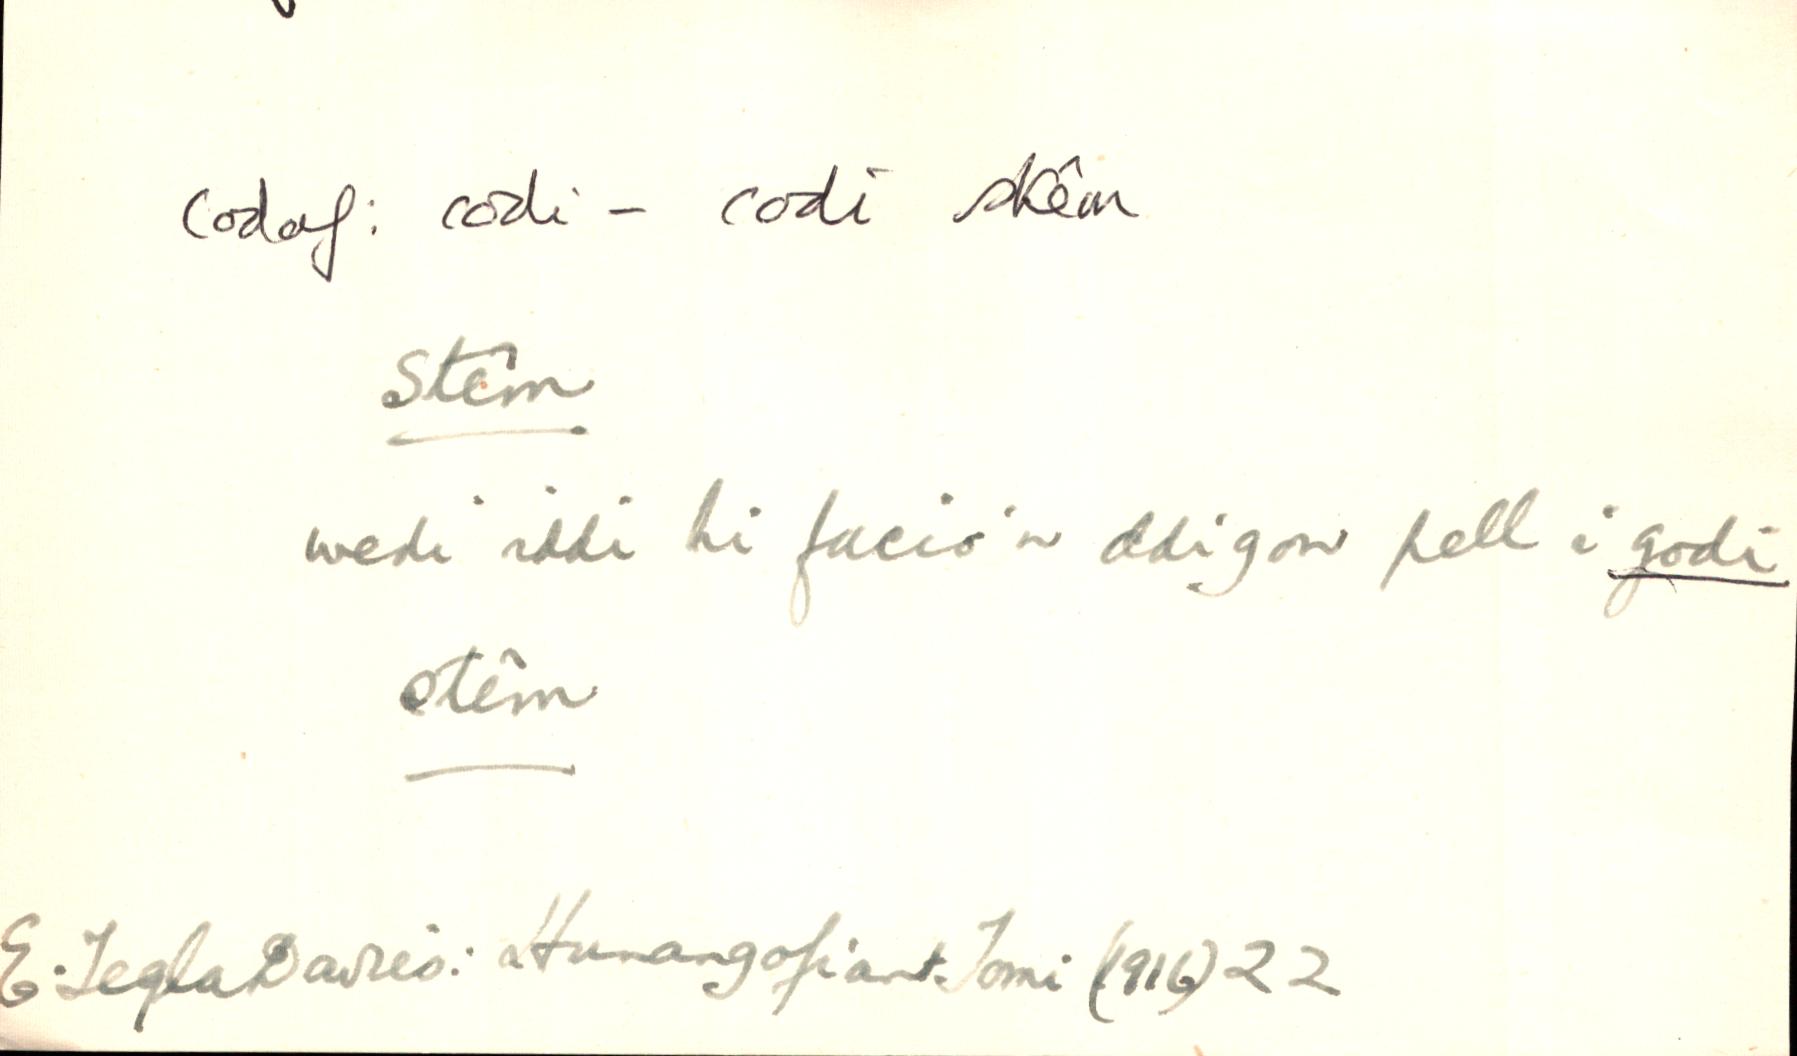 codaf: codi - codi stêm
Stêm
wedi iddi hi facio'n ddigon pell i godi
stêm
E. Tegla Davies: Hunangofiant Tomi (1916) 22